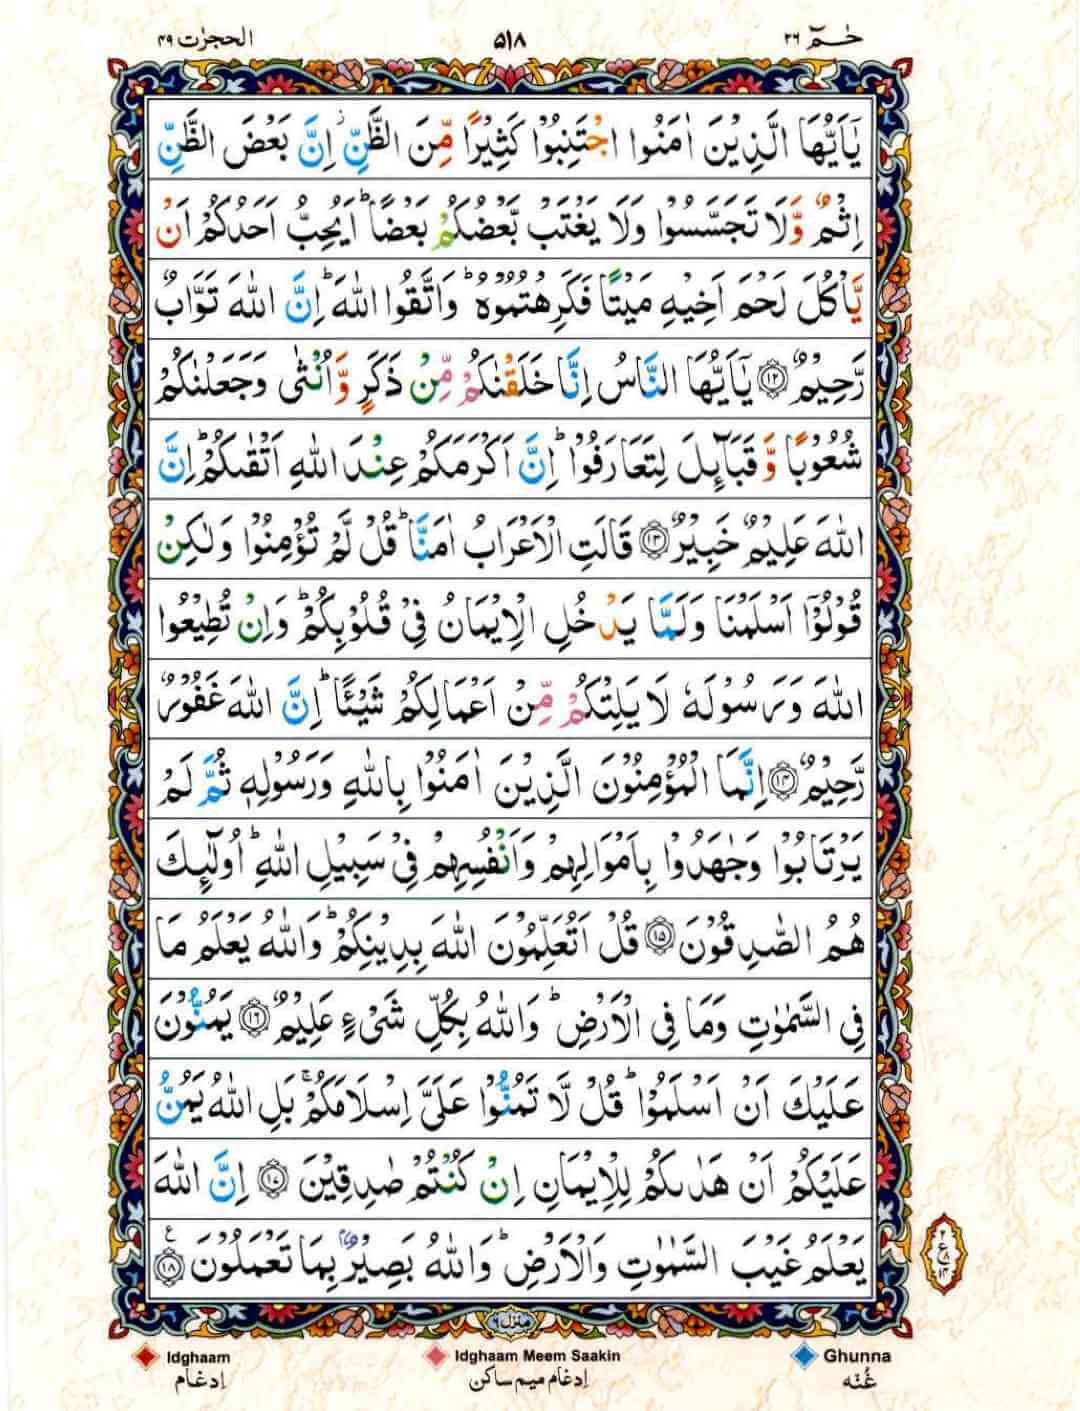 حٰمٓ ٢٦
٥١٨
الحجرٰت ٤٩
يٰۤاَيُّهَا الَّذِيْنَ اٰمَنُوا اجْتَنِبُوْا كَثِيْرًا مِّنَ الظَّنِّ ۫ اِنَّ بَعْضَ الظَّنِّ
اِثْمٌ وَّلَا تَجَسَّسُوْا وَلَا يَغْتَبْ بَّعْضُكُمْ بَعْضًا ؕ اَيُحِبُّ اَحَدُكُمْ اَنْ
يَّاْكُلَ لَحْمَ اَخِيْهِ مَيْتًا فَكَرِهْتُمُوْهُ ؕ وَاتَّقُوا اللّٰهَ ؕ اِنَّ اللّٰهَ تَوَّابٌ
رَّحِيْمٌ ﴿١٢﴾ يٰۤاَيُّهَا النَّاسُ اِنَّا خَلَقْنٰكُمْ مِّنْ ذَكَرٍ وَّاُنْثٰى وَجَعَلْنٰكُمْ
شُعُوْبًا وَّقَبَآئِلَ لِتَعَارَفُوْا ؕ اِنَّ اَكْرَمَكُمْ عِنْدَ اللّٰهِ اَتْقٰىكُمْ ؕ اِنَّ
اللّٰهَ عَلِيْمٌ خَبِيْرٌ ﴿١٣﴾ قَالَتِ الْاَعْرَابُ اٰمَنَّا ؕ قُلْ لَّمْ تُؤْمِنُوْا وَلٰكِنْ
قُوْلُوْۤا اَسْلَمْنَا وَلَمَّا يَدْخُلِ الْاِيْمَانُ فِيْ قُلُوْبِكُمْ ؕ وَاِنْ تُطِيْعُوا
اللّٰهَ وَرَسُوْلَهٗ لَا يَلِتْكُمْ مِّنْ اَعْمَالِكُمْ شَيْـًٔا ؕ اِنَّ اللّٰهَ غَفُوْرٌ
رَّحِيْمٌ ﴿١٤﴾ اِنَّمَا الْمُؤْمِنُوْنَ الَّذِيْنَ اٰمَنُوْا بِاللّٰهِ وَرَسُوْلِهٖ ثُمَّ لَمْ
يَرْتَابُوْا وَجٰهَدُوْا بِاَمْوَالِهِمْ وَاَنْفُسِهِمْ فِيْ سَبِيْلِ اللّٰهِ ؕ اُولٰٓئِكَ
هُمُ الصّٰدِقُوْنَ ﴿١٥﴾ قُلْ اَتُعَلِّمُوْنَ اللّٰهَ بِدِيْنِكُمْ ؕ وَاللّٰهُ يَعْلَمُ مَا
فِي السَّمٰوٰتِ وَمَا فِي الْاَرْضِ ؕ وَاللّٰهُ بِكُلِّ شَيْءٍ عَلِيْمٌ ﴿١٦﴾ يَمُنُّوْنَ
عَلَيْكَ اَنْ اَسْلَمُوْا ؕ قُلْ لَّا تَمُنُّوْا عَلَيَّ اِسْلَامَكُمْ ۚ بَلِ اللّٰهُ يَمُنُّ
عَلَيْكُمْ اَنْ هَدٰىكُمْ لِلْاِيْمَانِ اِنْ كُنْتُمْ صٰدِقِيْنَ ﴿١٧﴾ اِنَّ اللّٰهَ
يَعْلَمُ غَيْبَ السَّمٰوٰتِ وَالْاَرْضِ ؕ وَاللّٰهُ بَصِيْرٌۢ بِمَا تَعْمَلُوْنَ ﴿١٨﴾ ع
٢ ع ٨ ١٤
منزل ٦
Idghaam
Idghaam Meem Saakin
Ghunna
اِدغام
اِدغام ميم ساكن
غُنّه